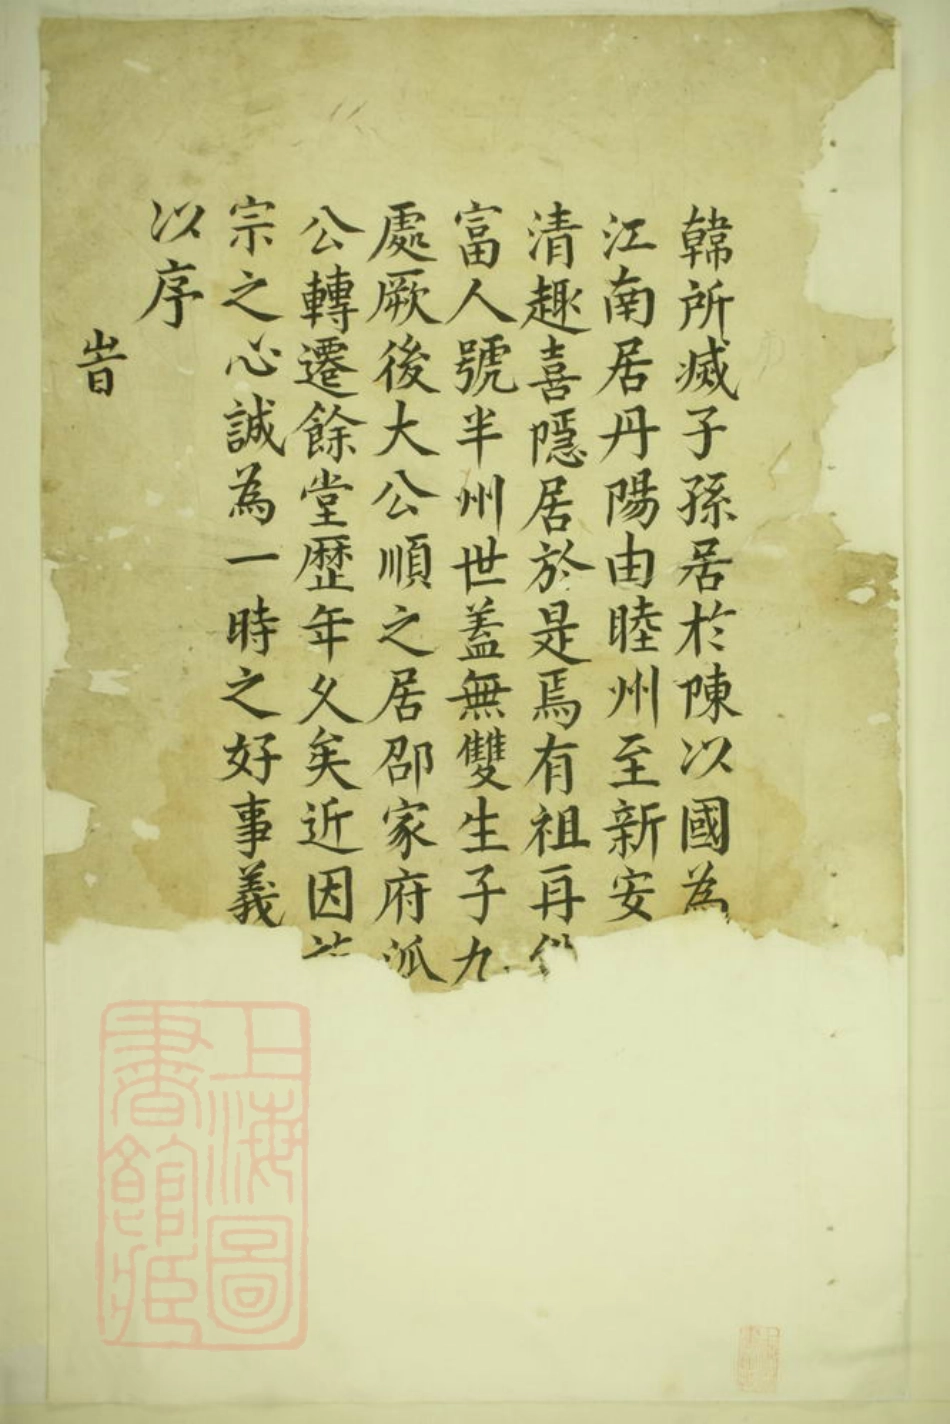 韓所烕子孫居扵陳以國為
江南居丹陽由睦州至新安
清趣喜隱居於是焉有祖再
富人號半州世蓋無雙生子九
處厥後大公順之居邵家府派
公轉遷餘堂歷年久矣近因
宗之心誠為一時之好事義
以序
旹
上海圖
書館藏